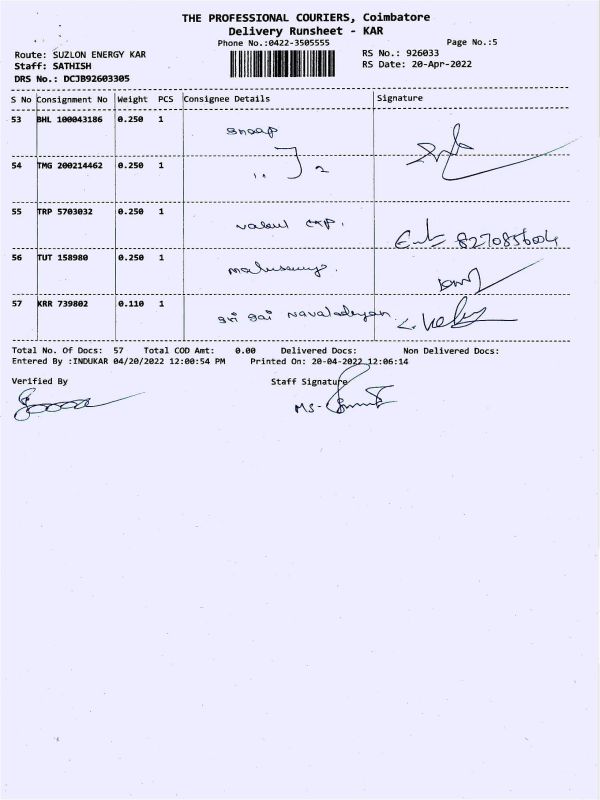 THE PROFESSIONAL COURIERS, Coimbatore
Delivery Runsheet - KAR
Phone No.:0422-3505555 Page No.:5
Route: SUZLON ENERGY KAR RS No.: 926033
Staff: SATHISH RS Date: 20-Apr-2022
DRS No.: DCJB92603305
S No Consignment No Weight PCS Consignee Details Signature
53 BHL 100043186 0.250 1
54 TMG 200214462 0.250 1
,, 2
55 TRP 5703032 0.250 1
8270856004
56 TUT 158980 0.250 1
57 KRR 739802 0.110 1 sri sai Navaladiyan
Total No. Of Docs: 57 Total COD Amt: 0.00 Delivered Docs: Non Delivered Docs:
Entered By :INDUKAR 04/20/2022 12:00:54 PM Printed On: 20-04-2022 12:06:14
Verified By Staff Signature
MS-